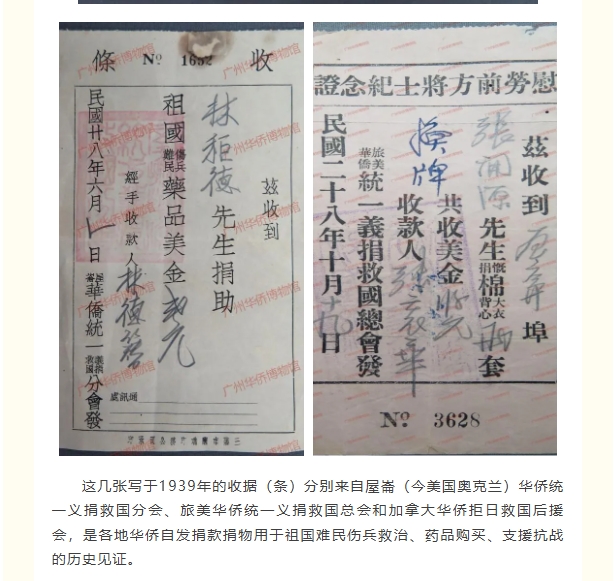 收條
Nº 1652
茲收到
林稆德先生捐助
祖國傷兵難民藥品美金
經手收款人林德
民國廿八年六月 日
華僑統一義捐救國分會發
通訊處
慰勞前方將士紀念證
茲收到 埠
張潤源先生慨捐棉大衣背心 套
換牌
共收美金
收款人
旅美華僑統一義捐救國總會發
民國二十八年十月十九日
Nº 3628
广州华侨博物馆
这几张写于1939年的收据（条）分别来自屋崙（今美国奥克兰）华侨统
一义捐救国分会、旅美华侨统一义捐救国总会和加拿大华侨拒日救国后援
会，是各地华侨自发捐款捐物用于祖国难民伤兵救治、药品购买、支援抗战
的历史见证。